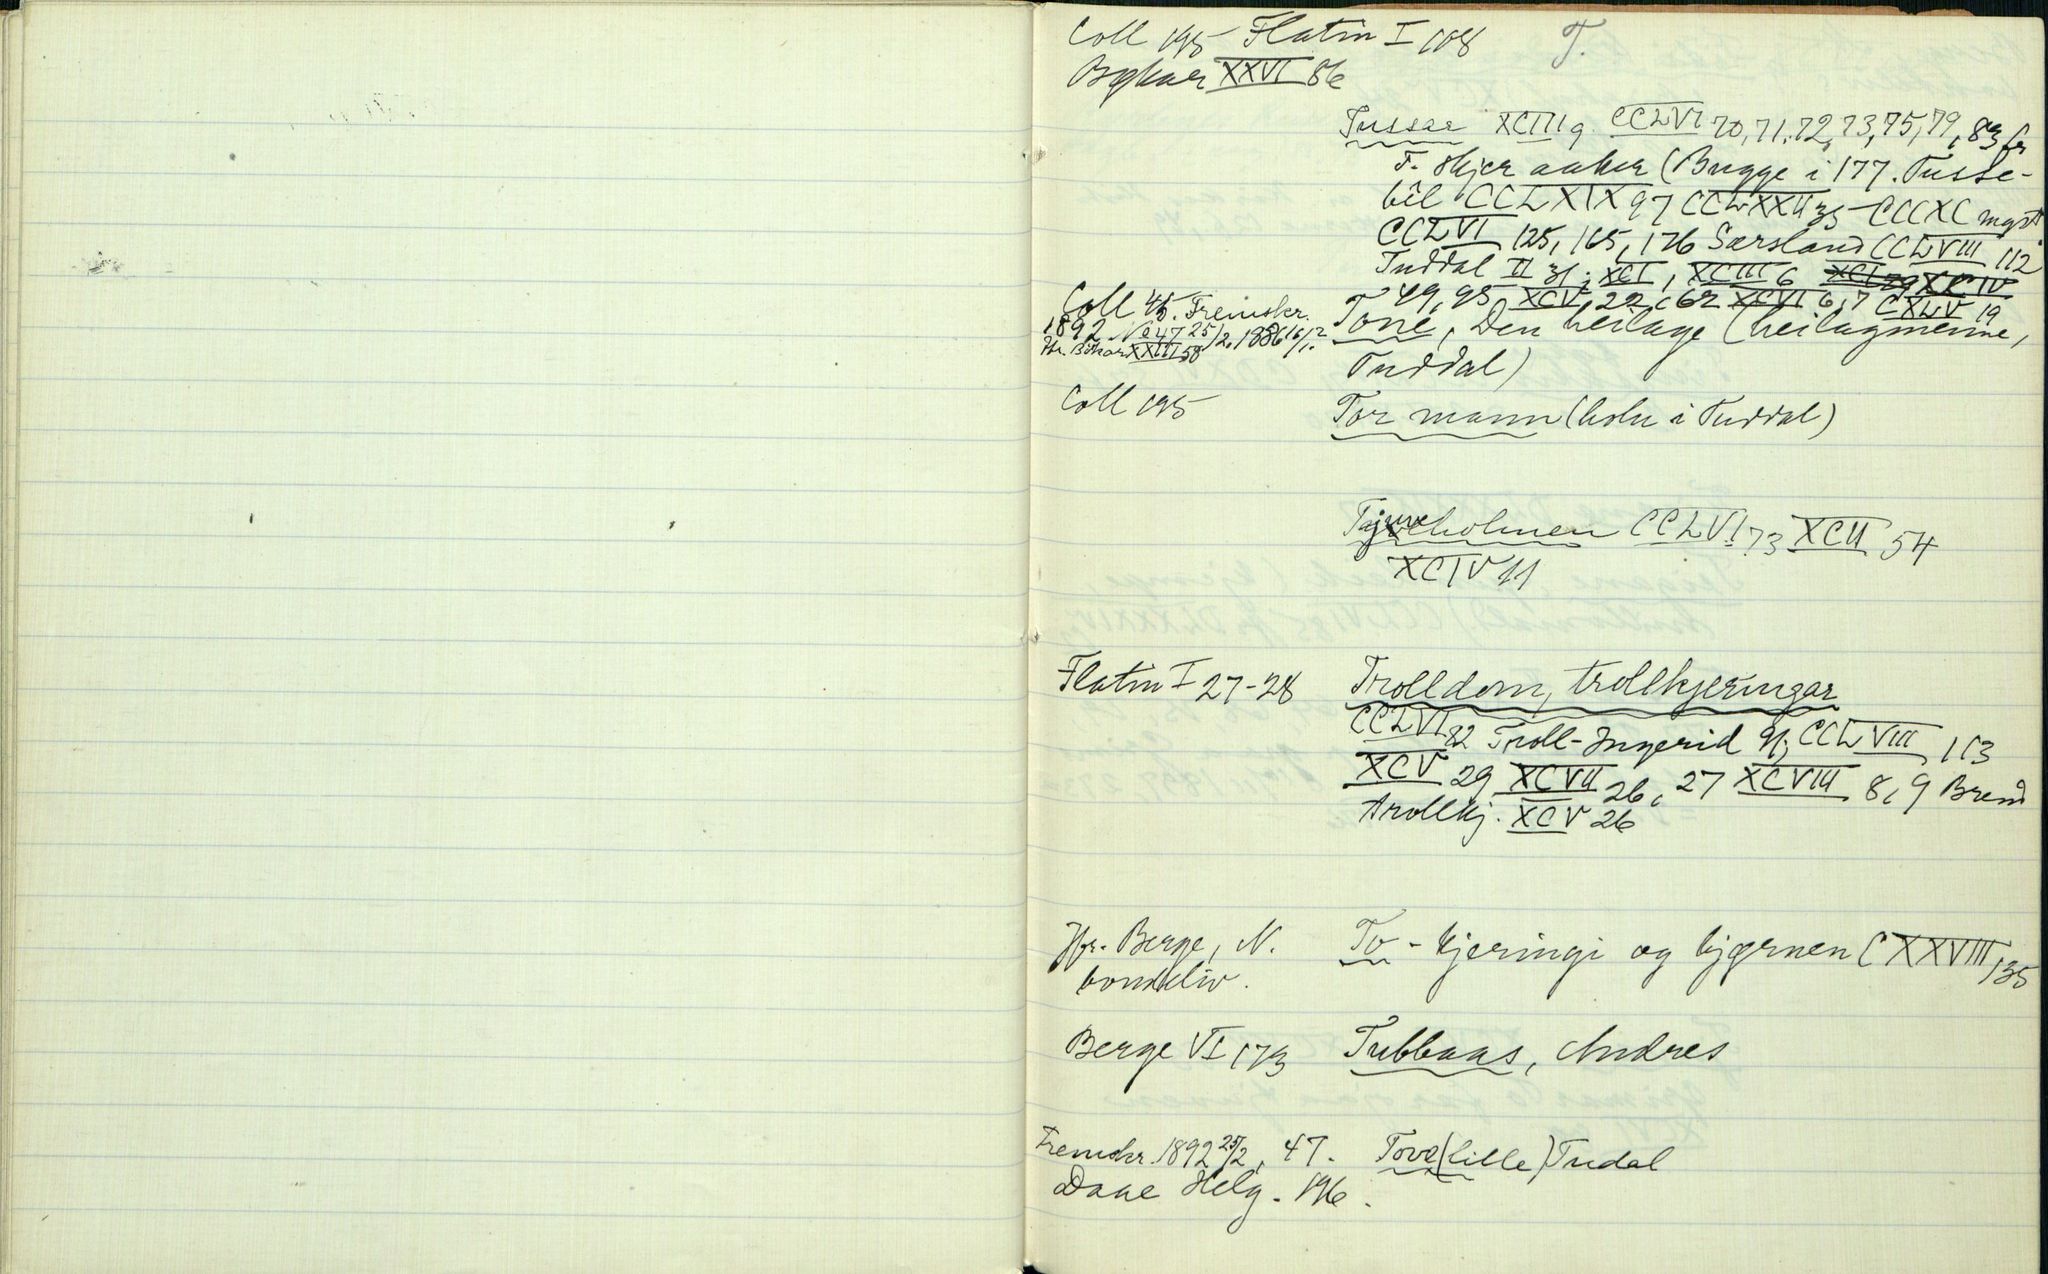 Coll 195 Flatin I 108 T.
Bøkar XXVI 86
Tussar XCIII 9 CCLVI 70, 71, 72, 73, 75, 79, 83 fr
T. skjer aaker (Bugge i 177. Tusse-
bêl CCLXIX 97 CCLXXII 35 - CCCXC
CCLVI 125, 165, 176 Sørsland CCLVIII 112
Tuddal II 31; XCI, XCIII 6 XCI 29 XCIV
49, 95 XCV 22, 62 XCVI 6, 7 CXLV 19
Coll 45. Fremskr. Tone, Den heilage (heilagmenne,
1892 No 47 25/2, 1886 16/12
Hr. Bøkar XXIII 58 Tuddal)
Coll 195 Tor mann (holu i Tuddal)
Tajeholmen CCLVI 73 XCII 54
XCIV 11
Flatin I 27-28 Trolldom, trollkjeringar
CCLVI 82 Troll-Ingerid 91; CCLVIII 113
XCV 29 XCVII 26, 27 XCVIII 8, 9 Brend
trollkj. XCV 26
Jfr. Berge, N. To - kjeringi og bjørnen CXXVIII 135
bondeliv.
Berge VI 173 Tubbaas, Andres
Fremskr. 1892 25/2, 47. Tove (lille) Tudal
Daae Helg. 196.